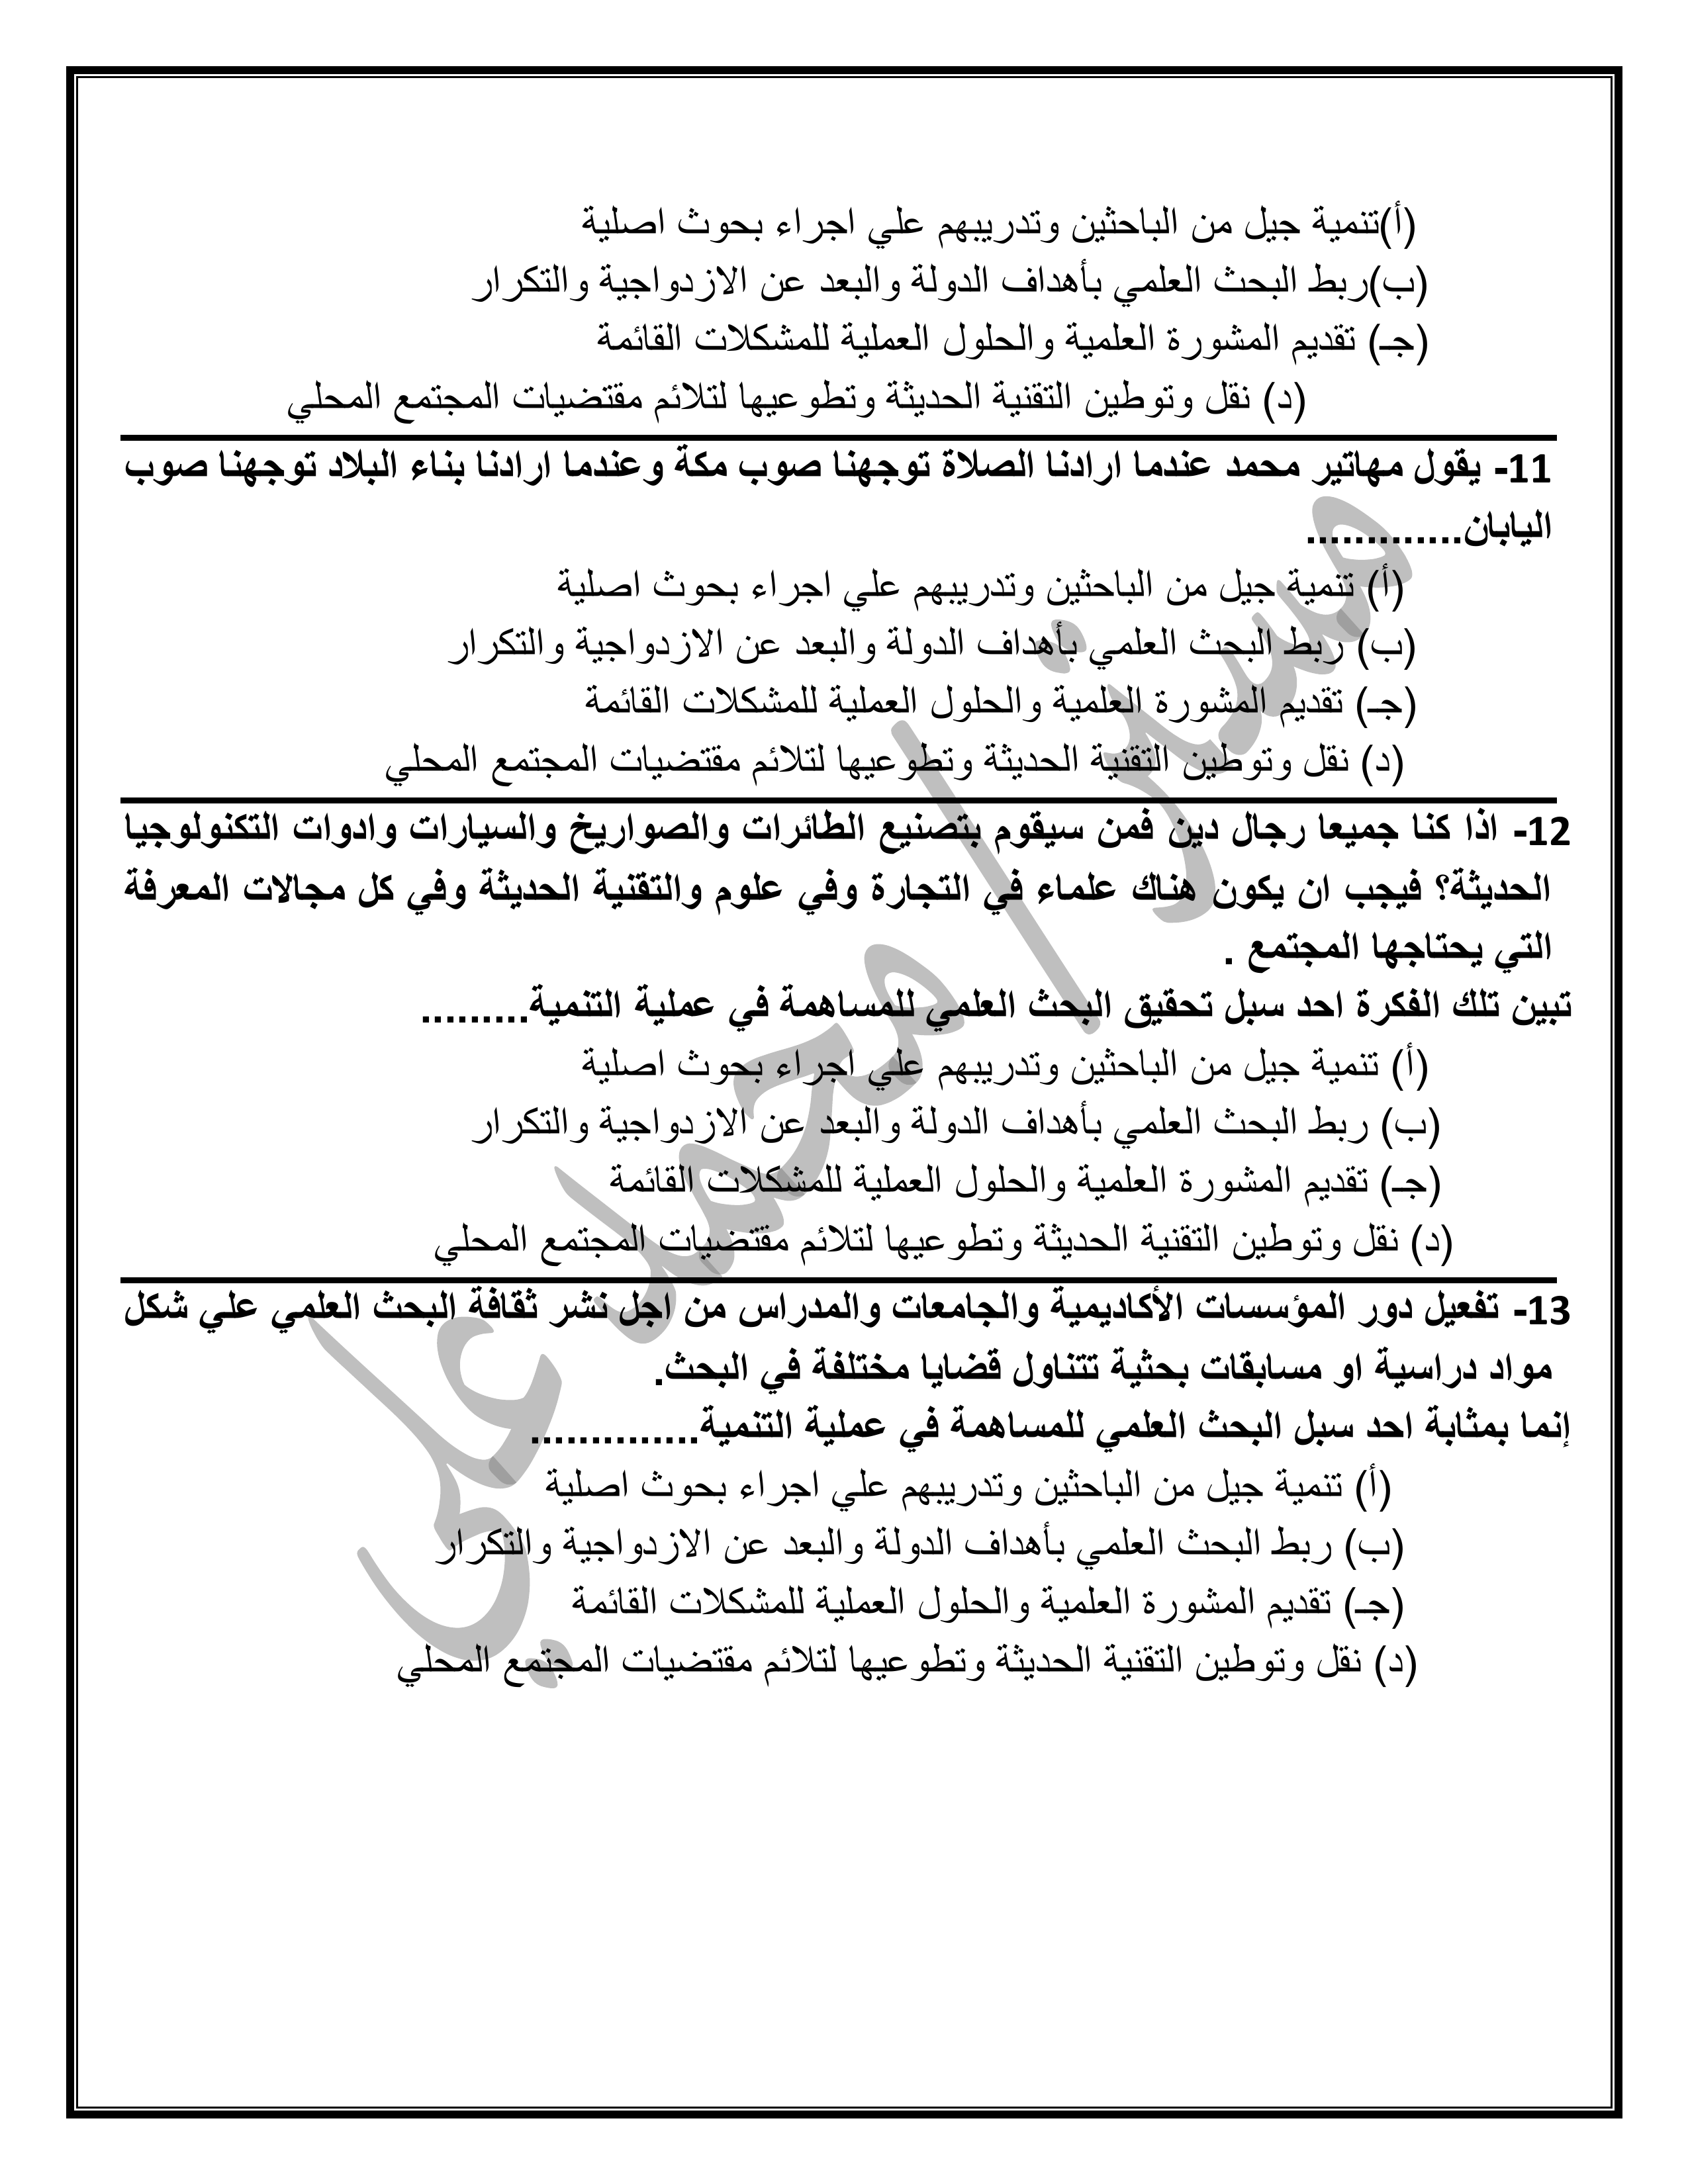 (أ)تنمية جيل من الباحثين وتدريبهم علي اجراء بحوث اصلية
(ب)ربط البحث العلمي بأهداف الدولة والبعد عن الازدواجية والتكرار
(جـ) تقديم المشورة العلمية والحلول العملية للمشكلات القائمة
(د) نقل وتوطين التقنية الحديثة وتطوعيها لتلائم مقتضيات المجتمع المحلي
11- يقول مهاتير محمد عندما ارادنا الصلاة توجهنا صوب مكة وعندما ارادنا بناء البلاد توجهنا صوب
اليابان.............
(أ) تنمية جيل من الباحثين وتدريبهم علي اجراء بحوث اصلية
(ب) ربط البحث العلمي بأهداف الدولة والبعد عن الازدواجية والتكرار
(جـ) تقديم المشورة العلمية والحلول العملية للمشكلات القائمة
(د) نقل وتوطين التقنية الحديثة وتطوعيها لتلائم مقتضيات المجتمع المحلي
12- اذا كنا جميعا رجال دين فمن سيقوم بتصنيع الطائرات والصواريخ والسيارات وادوات التكنولوجيا
الحديثة؟ فيجب ان يكون هناك علماء في التجارة وفي علوم والتقنية الحديثة وفي كل مجالات المعرفة
التي يحتاجها المجتمع .
تبين تلك الفكرة احد سبل تحقيق البحث العلمي للمساهمة في عملية التنمية.........
(أ) تنمية جيل من الباحثين وتدريبهم علي اجراء بحوث اصلية
(ب) ربط البحث العلمي بأهداف الدولة والبعد عن الازدواجية والتكرار
(جـ) تقديم المشورة العلمية والحلول العملية للمشكلات القائمة
(د) نقل وتوطين التقنية الحديثة وتطوعيها لتلائم مقتضيات المجتمع المحلي
13- تفعيل دور المؤسسات الأكاديمية والجامعات والمدراس من اجل نشر ثقافة البحث العلمي علي شكل
مواد دراسية او مسابقات بحثية تتناول قضايا مختلفة في البحث.
إنما بمثابة احد سبل البحث العلمي للمساهمة في عملية التنمية..............
(أ) تنمية جيل من الباحثين وتدريبهم علي اجراء بحوث اصلية
(ب) ربط البحث العلمي بأهداف الدولة والبعد عن الازدواجية والتكرار
(جـ) تقديم المشورة العلمية والحلول العملية للمشكلات القائمة
(د) نقل وتوطين التقنية الحديثة وتطوعيها لتلائم مقتضيات المجتمع المحلي
مستر/محمد علي